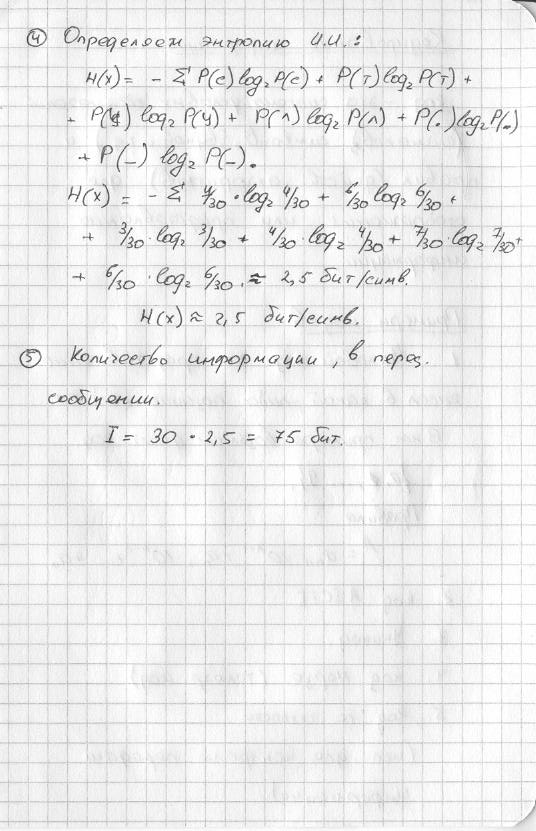 ④ Определяем энтропию И.И.:
H(x) = - Σ P(c) log₂ P(c) + P(т) log₂ P(т) +
+ P(у) log₂ P(у) + P(л) log₂ P(л) + P(.) log₂ P(.)
+ P(–) log₂ P(–).
H(x) = - Σ 4/30 · log₂ 4/30 + 6/30 log₂ 6/30 +
+ 3/30 · log₂ 3/30 + 4/30 · log₂ 4/30 + 7/30 · log₂ 7/30 +
+ 6/30 · log₂ 6/30. ≈ 2,5 бит/симв.
H(x) ≈ 2,5 бит/симв.
⑤ Количество информации, в перед.
сообщении.
I = 30 · 2,5 = 75 бит.